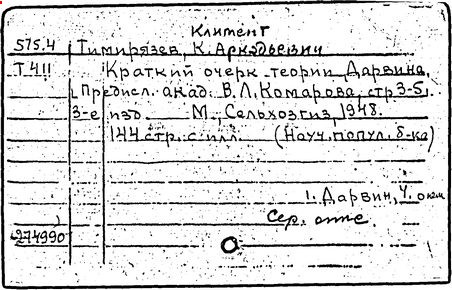 Климент
575.4 Тимирязев, К. Аркадьевич
Т 411 Краткий очерк теории Дарвина.
Предисл. акад. В. Л. Комарова, стр 3-5
3-е изд. М., Сельхозгиз, 1948.
144 стр. с илл. (Науч. попул. б-ка)
1. Дарвин, Ч. о нем
Сер. отте.
274990